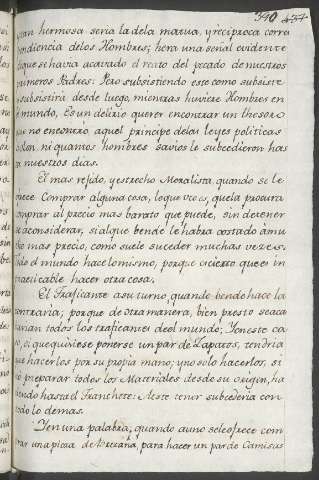 390 437
tan hermosa seria la dela mutua, y reciproca corres
pondiencia delos Hombres; hera una señal evidente
que se havia acavado el reato del pecado de nuestros
primeros Padres: Pero subsistiendo este como subsiste
y subsistirá desde luego, mientras huviere Hombres en
el mundo, Es un delirio querer encontrar un thesoro
que no encontro aquel principe delas leyes politicas
Solon, ni quantos hombres savios le subcedieron has
ta nuestros dias.
El mas reſido, y estrecho Moralista, quando se le
ofrece Comprar alguna cosa, lo que vé es, quela procura
comprar al precio mas barato que puede, sin detener
se a considerar, si al que bende le habra costado a mu
cho mas precio, como suele suceder muchas vezes.
Todo el mundo hace lo mismo, porque es cierto que es in
practicable hacer otra cosa.
El Traficante a su turno, quando bende hace la
contraria; porque de otra manera, bien presto se aca
varian todos los traficantes deel mundo; Y en este ca
so, el que quisiese ponerse un par de Zapatos, tendria
que hacerlos por su propia mano; y no solo hacerlos, si
no preparar todos los Materiales desde su origen, ha
ciendo hasta el Tranchete: A este tenor subcederia con
todo lo demas.
Y en una palabra; quando a uno se le ofrece com
prar una pieza de Bretaña, para hacer un par de Camisas